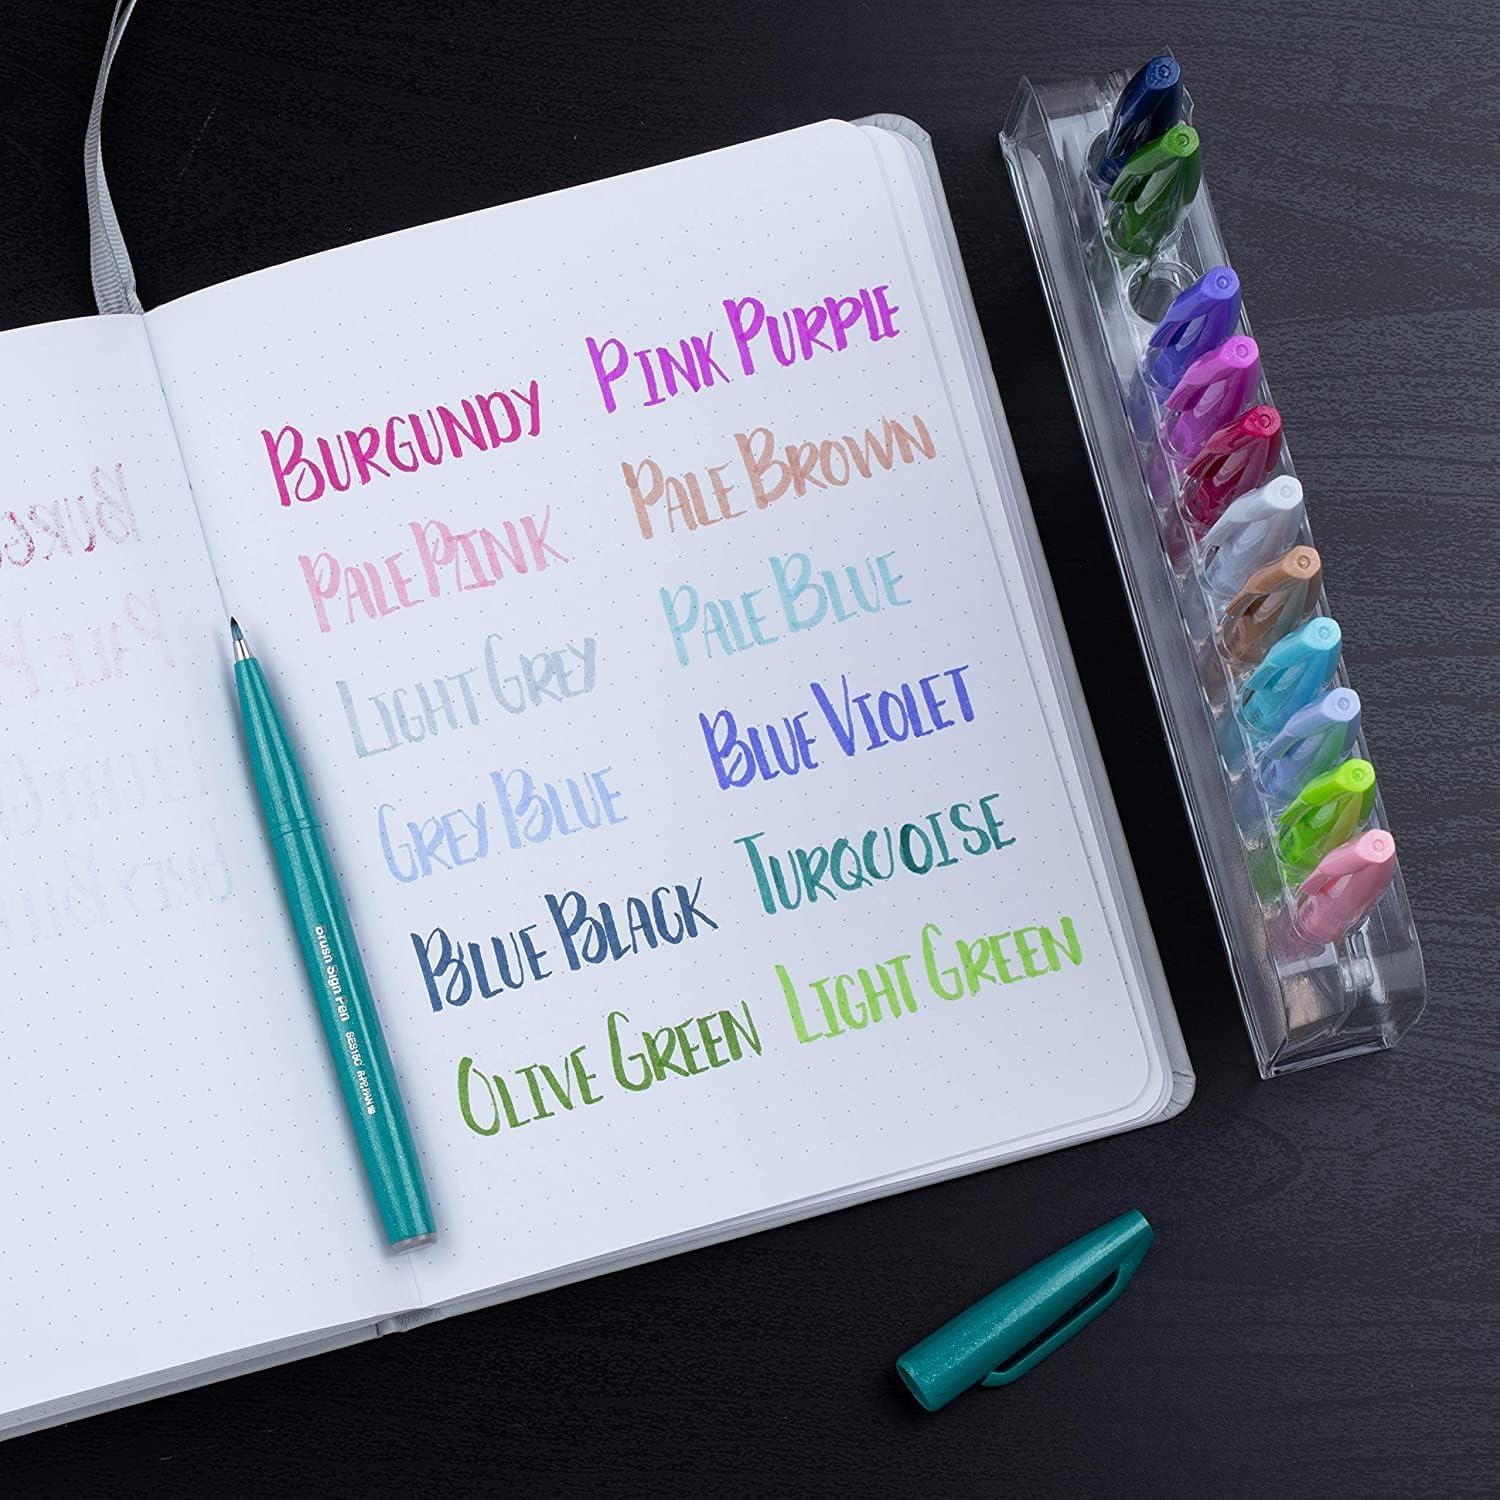 Burgundy
Pink Purple
Pale Pink
Pale Brown
Light Grey
Pale Blue
Grey Blue
Blue Violet
Blue Black
Turquoise
Olive Green
Light Green
Brush Sign Pen SES15C